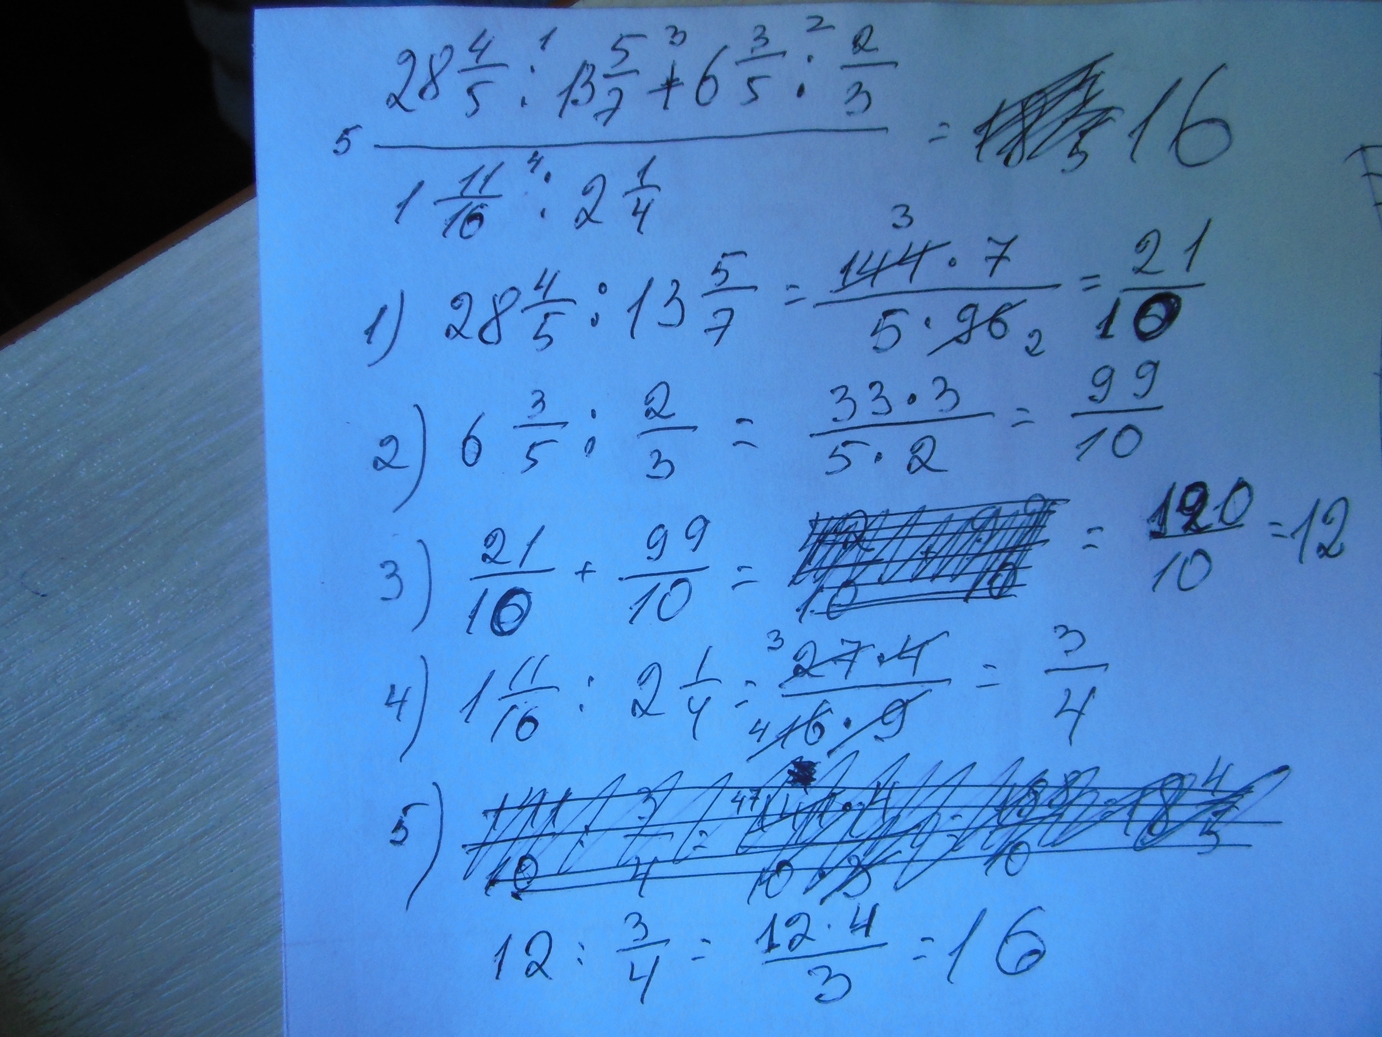 28 4/5 : 13 5/7 + 6 3/5 : 2/3
1 11/16 : 2 1/4
= 16
1) 28 4/5 : 13 5/7 = 144·7 / 5·96 = 21/10
2) 6 3/5 : 2/3 = 33·3 / 5·2 = 99/10
3) 21/10 + 99/10 = 120/10 = 12
4) 1 11/16 : 2 1/4 = 27·4 / 16·9 = 3/4
5)
12 : 3/4 = 12·4 / 3 = 16